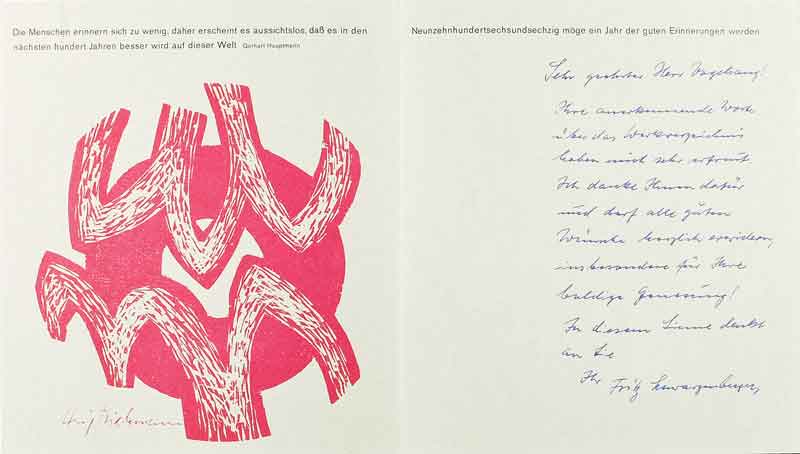 Die Menschen erinnern sich zu wenig, daher erscheint es aussichtslos, daß es in den
nächsten hundert Jahren besser wird auf dieser Welt Gerhart Hauptmann
Neunzehnhundertsechsundsechzig möge ein Jahr der guten Erinnerungen werden
Sehr geehrter Herr Vogelsang!
Ihre anerkennende Worte
über das Werkverzeichnis
haben mich sehr erfreut
Ich danke Ihnen dafür
und darf alle guten
Wünsche herzlich erwidern,
insbesondere für Ihre
baldige Genesung!
In diesem Sinne denkt
an Sie
Ihr Fritz Schwarzenberger